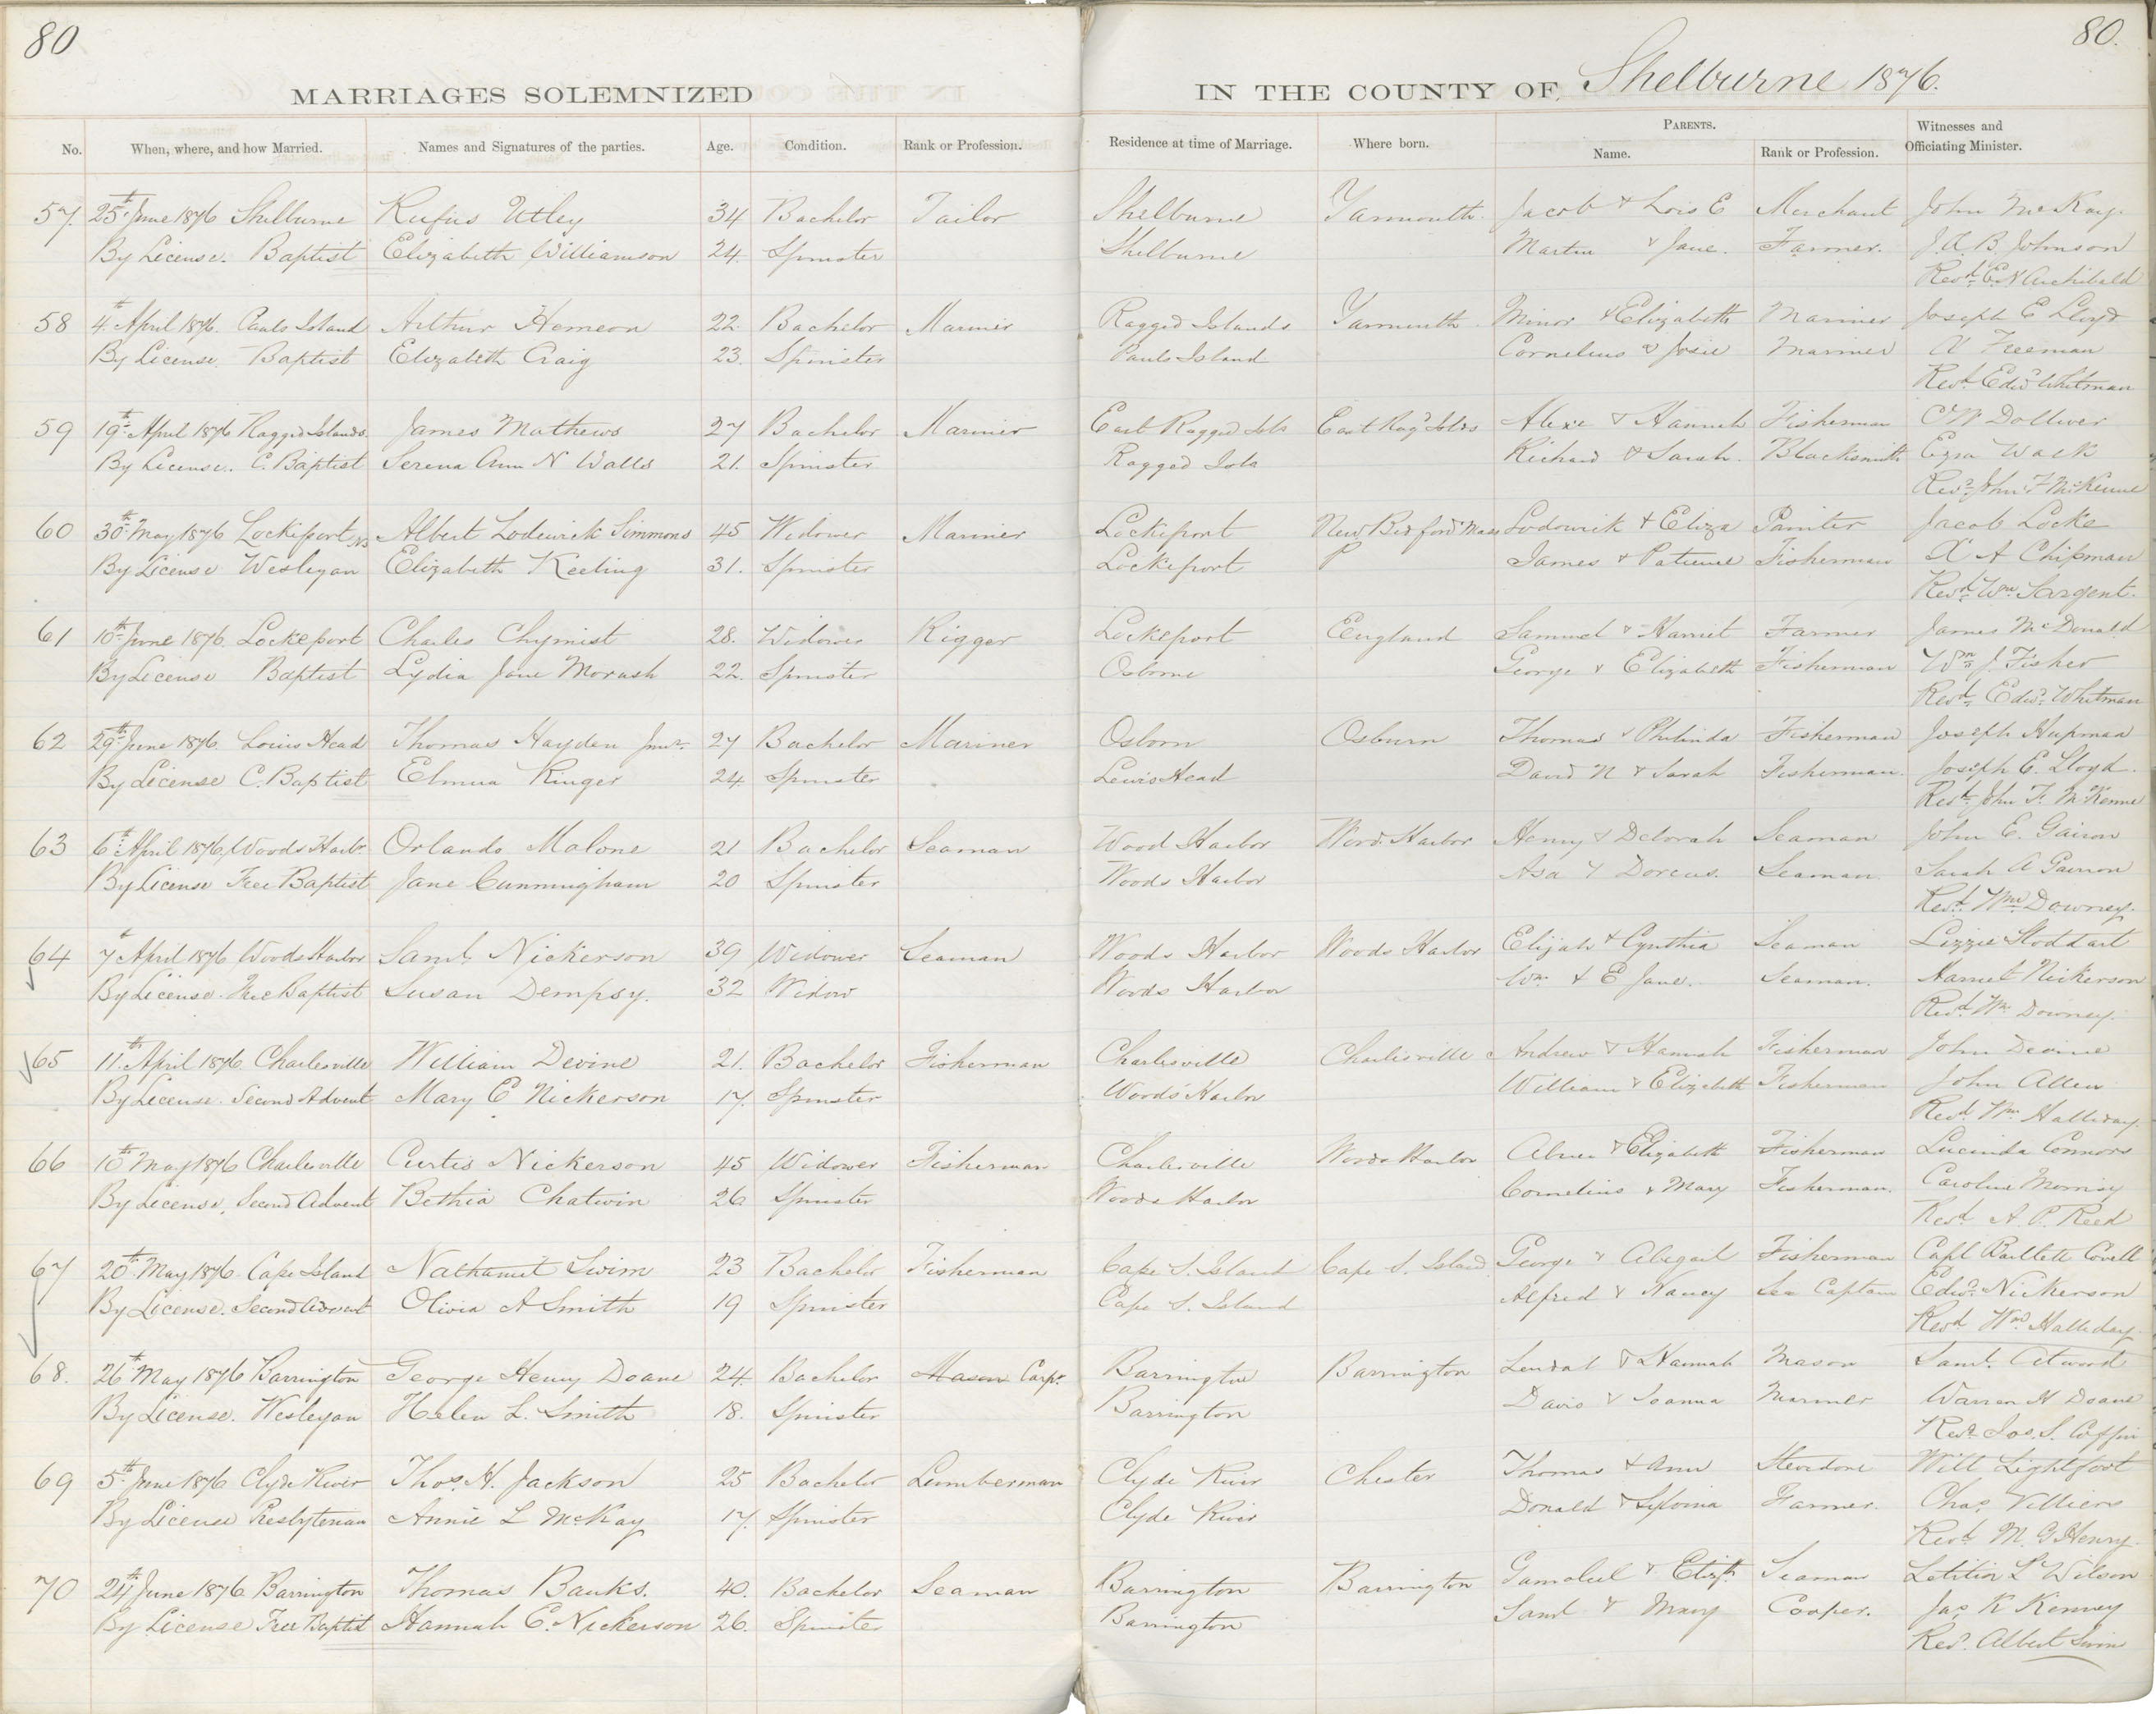 80
80.
MARRIAGES SOLEMNIZED IN THE COUNTY OF Shelburne 1876.
No. When, where, and how Married. Names and Signatures of the parties. Age. Condition. Rank or Profession. Residence at time of Marriage. Where born. PARENTS. Name. Rank or Profession. Witnesses and Officiating Minister.
57. 25th June 1876 Shelburne Rufus Utley 34 Bachelor Tailor Shelburne Yarmouth. Jacob & Lois E Merchant John McKay.
By License. Baptist Elizabeth Williamson 24. Spinster Shelburne Martin & Jane. Farmer. J. A. B. Johnson
Revd. E. N Archibald
58 4th April 1876. Pauls Island Arthur Hemeon 22. Bachelor Mariner Ragged Islands Yarmouth. Minor & Elizabeth Mariner Joseph E Lloyd
By License. Baptist Elizabeth Craig 23. Spinster Pauls Island Cornelius & Josie Mariner A Freeman
Revd. Edwd Whitman
59 19th April 1876 Ragged Islands. James Mathews 27 Bachelor Mariner East Ragged Isls East Rag'd Islds Alexr & Hannah Fisherman Dolliver
By License. C. Baptist Serena Ann N Walls 21. Spinster Ragged Isls Richard & Sarah. Blacksmith Ezra Wall
Revd. John F McKenne
60 30th May 1876 Lockeport NS Albert Lodewick Simmons 45 Widower Mariner Lockeport New Bedford Mass Lodowick & Eliza Painter Jacob Locke
By License Wesleyan Elizabeth Keeling 31. Spinster Lockeport P James & Patience Fisherman A Chipman
Revd. Wm Sargent.
61 10th June 1876. Lockeport Charles Chymist 28. Widower Rigger Lockeport England Samuel & Harriet Farmer James McDonald
By License Baptist Lydia Jane Morash 22. Spinster Osborne George & Elizabeth Fisherman Wm J. Fisher
Revd. Edwd. Whitman
62 29th June 1876. Louis Head Thomas Hayden Junr. 27 Bachelor Mariner Osborn Osburn Thomas & Philinda Fisherman Joseph Hupman
By License C. Baptist Elmira Ringer 24. Spinster Lewis Head David N & Sarah Fisherman. Joseph E. Lloyd.
Revd. John F. McKenne
63 6th April 1876, Woods Harbr. Orlando Malone 21 Bachelor Seaman Wood Harbor Wood. Harbor Henry & Deborah Seaman John E. Gairon
By License Free Baptist Jane Cunningham 20 Spinster Woods Harbor Asa & Dorcus. Seaman. Sarah A Gairon
Revd. Wm Downey.
64 7th April 1876 Woods Harbor Saml. Nickerson 39 Widower Seaman Woods Harbor Woods Harbor Elijah & Cynthia Seaman Lizzie Stoddart
By License. Free Baptist Susan Dempsy. 32 Widow Woods Harbor Wm. & E Jane. Seaman. Harriet Nickerson
Revd. Wm Downey.
65 11th April 1876. Charlesville William Devine 21. Bachelor Fisherman Charlesville Charlesville Andrew & Hannah Fisherman John Devine
By License. Second Advent Mary E Nickerson 17. Spinster Woods Harbor William & Elizabeth Fisherman John Allen
Revd Wm Halliday.
66 10th May 1876 Charlesville Curtis Nickerson 45 Widower Fisherman Charlesville Woods Harbor Abner & Elizabeth Fisherman Lucinda Connors
By License, Second Advent Bethia Chatwin 26. Spinster Woods Harbor Cornelius & Mary Fisherman. Caroline Morrisy
Revd A. P. Reed
67 20th May 1876. Cape Island Nathaniel Swim 23 Bachelor Fisherman Cape S. Island Cape S. Island George & Abigail Fisherman Capt Bartlett Covell
By License. Second Advent Olivia A Smith 19 Spinster Cape S. Island Alfred & Nancy Sea Captain Edwd. Nickerson
Revd Wm Halliday.
68. 26th May 1876 Barrington George Henry Doane 24. Bachelor Mason Carpr. Barrington Barrington Lendal & Hannah Mason Saml. Atwood
By License. Wesleyan Helen L. Smith 18. Spinster Barrington David & Joanna Mariner Warren H Doane
Revd. Jos. S. Coffin
69 5th June 1876 Clyde River Thos. H. Jackson 25 Bachelor Lumberman Clyde River Chester Thomas & Ann Stevidore Will Lightfoot
By License Presbyterian Annie L McKay 17. Spinster Clyde River Donald & Sylvina Farmer. Chas. Villiers
Revd M. G. Henry.
70 24th June 1876 Barrington Thomas Banks. 40. Bachelor Seaman Barrington Barrington Gamaliel & Elizth. Seaman Letitia L Wilson
By License Free Baptist Hannah E. Nickerson 26. Spinster Barrington Saml & Mary Cooper. Jas R Kenney
Revd. Albert Swim